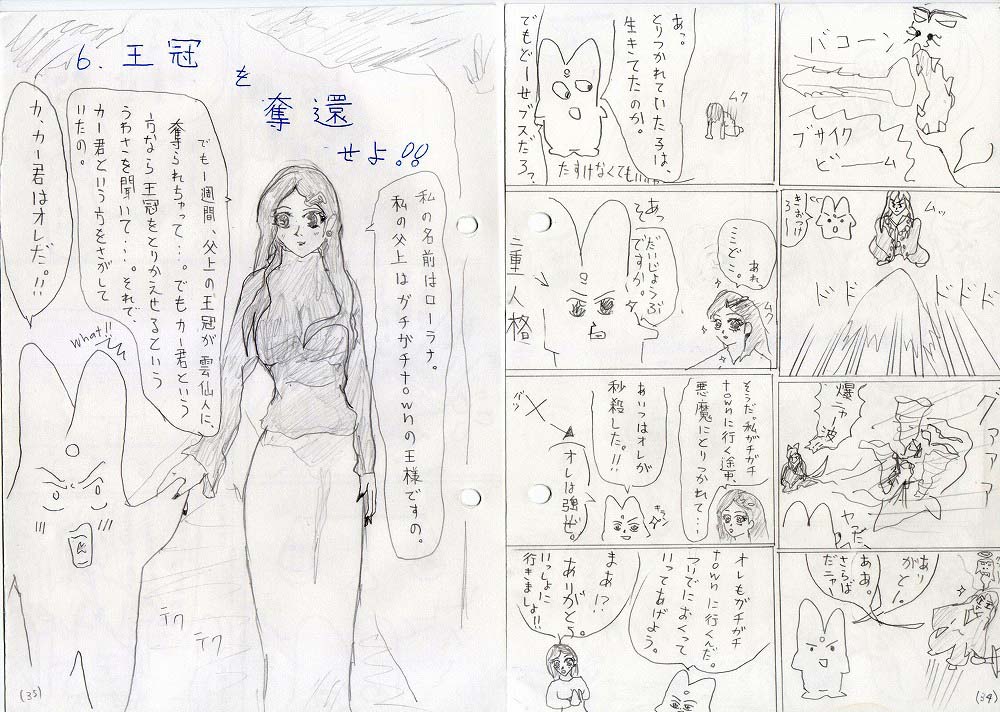 バコーン
ブサイク
ビーム
ムッ
きおつけ
ろー
ドド
ドドド
グァァァ
爆ニャー波
ヤァだ
あり
がとー。
ああ。
さらば
だニャー
(34)
あっ。
とりつかれていた子は、
生きてたのか。
でもどーせブスだろ?
たすけなくても
ムク
あれ、
ここどこ。
ムク
あっ
そ
だいじょうぶ
ですか。
二重人格
そうだ。私がガチガチ
townに行く途中、
悪魔にとりつかれて…
あいつはオレが
秒殺した。!!
キラン
オレは強ぜ。
バッ
オレもガチガチ
townに行くんだ。
ついでにおくって
いってあげよう。
まあ!?
ありがとう。
いっしょに
行きましょ!!
6. 王冠
を
奪還
せよ!!
私の名前はローラナ。
私の父上はガチガチtownの王様ですの。
でも一週間、父上の王冠が雲仙人に、
奪られちゃって…。でもカー君という
方なら王冠をとりかえせるという
うわさを聞いて…。それで、
カー君という方をさがして
いたの。
カ、カー君はオレだ。!!
What!!
テク
テク
(35)